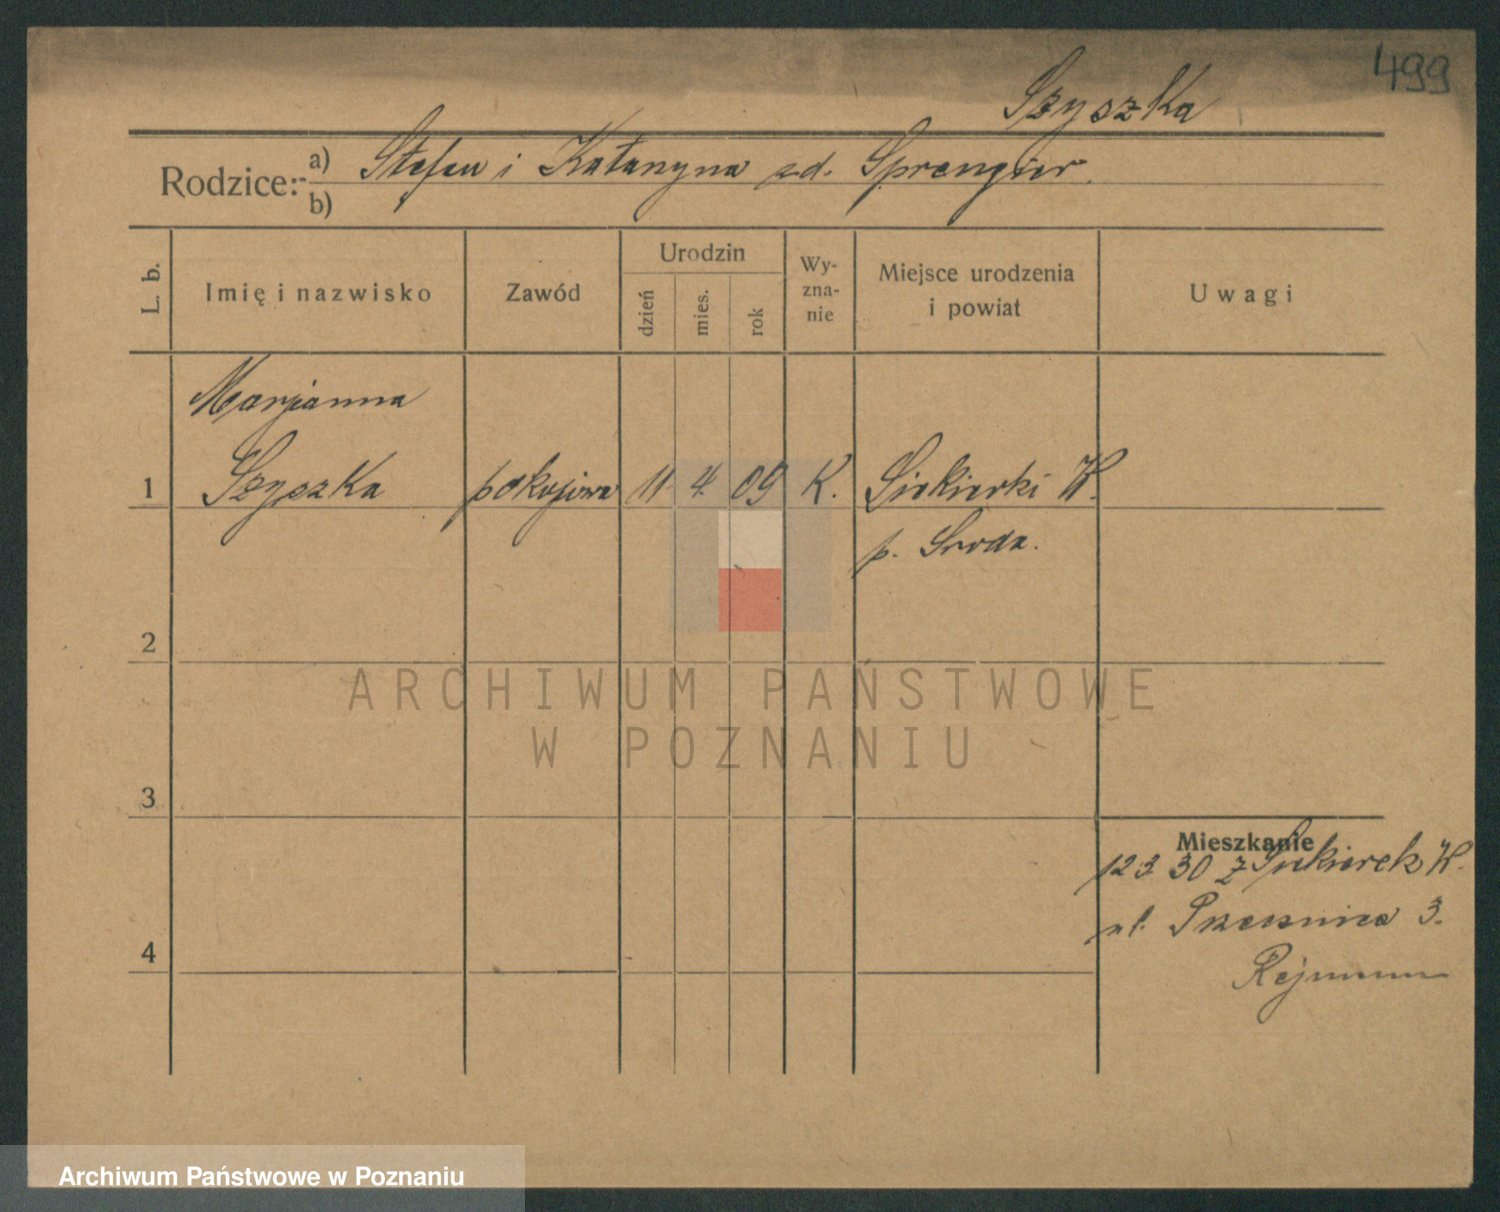 499
Szyszka
Rodzice: a) Stefan i Katarzyna zd. Sprengier.
b)
L. b. Imię i nazwisko Zawód Urodzin dzień mies. rok Wyznanie Miejsce urodzenia i powiat Uwagi
Marjanna
1 Szyszka pokojowa 11. 4. 09 K. Siekierki W.
p. Środa.
2
ARCHIWUM PAŃSTWOWE
W POZNANIU
3
Mieszkanie
12 3. 30 z Siekierek W.
ul. 3.
4
Archiwum Państwowe w Poznaniu